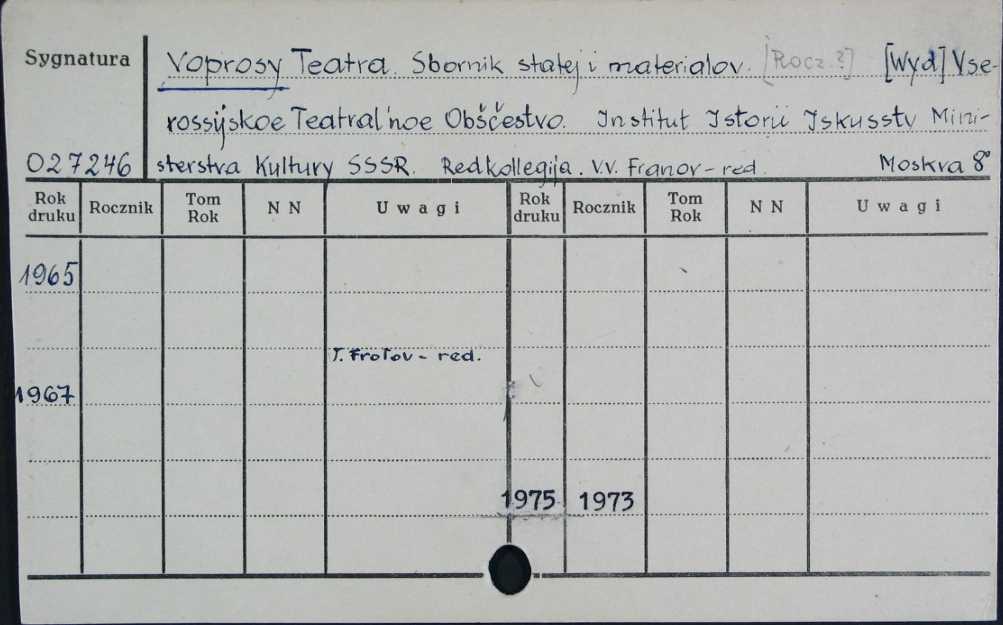 Sygnatura
Voprosy Teatra. Sbornik statej i materialov. [Rocz.?] [Wyd] Vse-
rossijskoe Teatral'noe Obščestvo. Institut Istorii Iskusstv Mini-
027246 sterstva Kultury SSSR. Redkollegija. V.V. Franov - red. Moskva 8°
Rok druku Rocznik Tom Rok N N Uwagi Rok druku Rocznik Tom Rok N N Uwagi
1965
T. Frołov - red.
1967
1975 1973